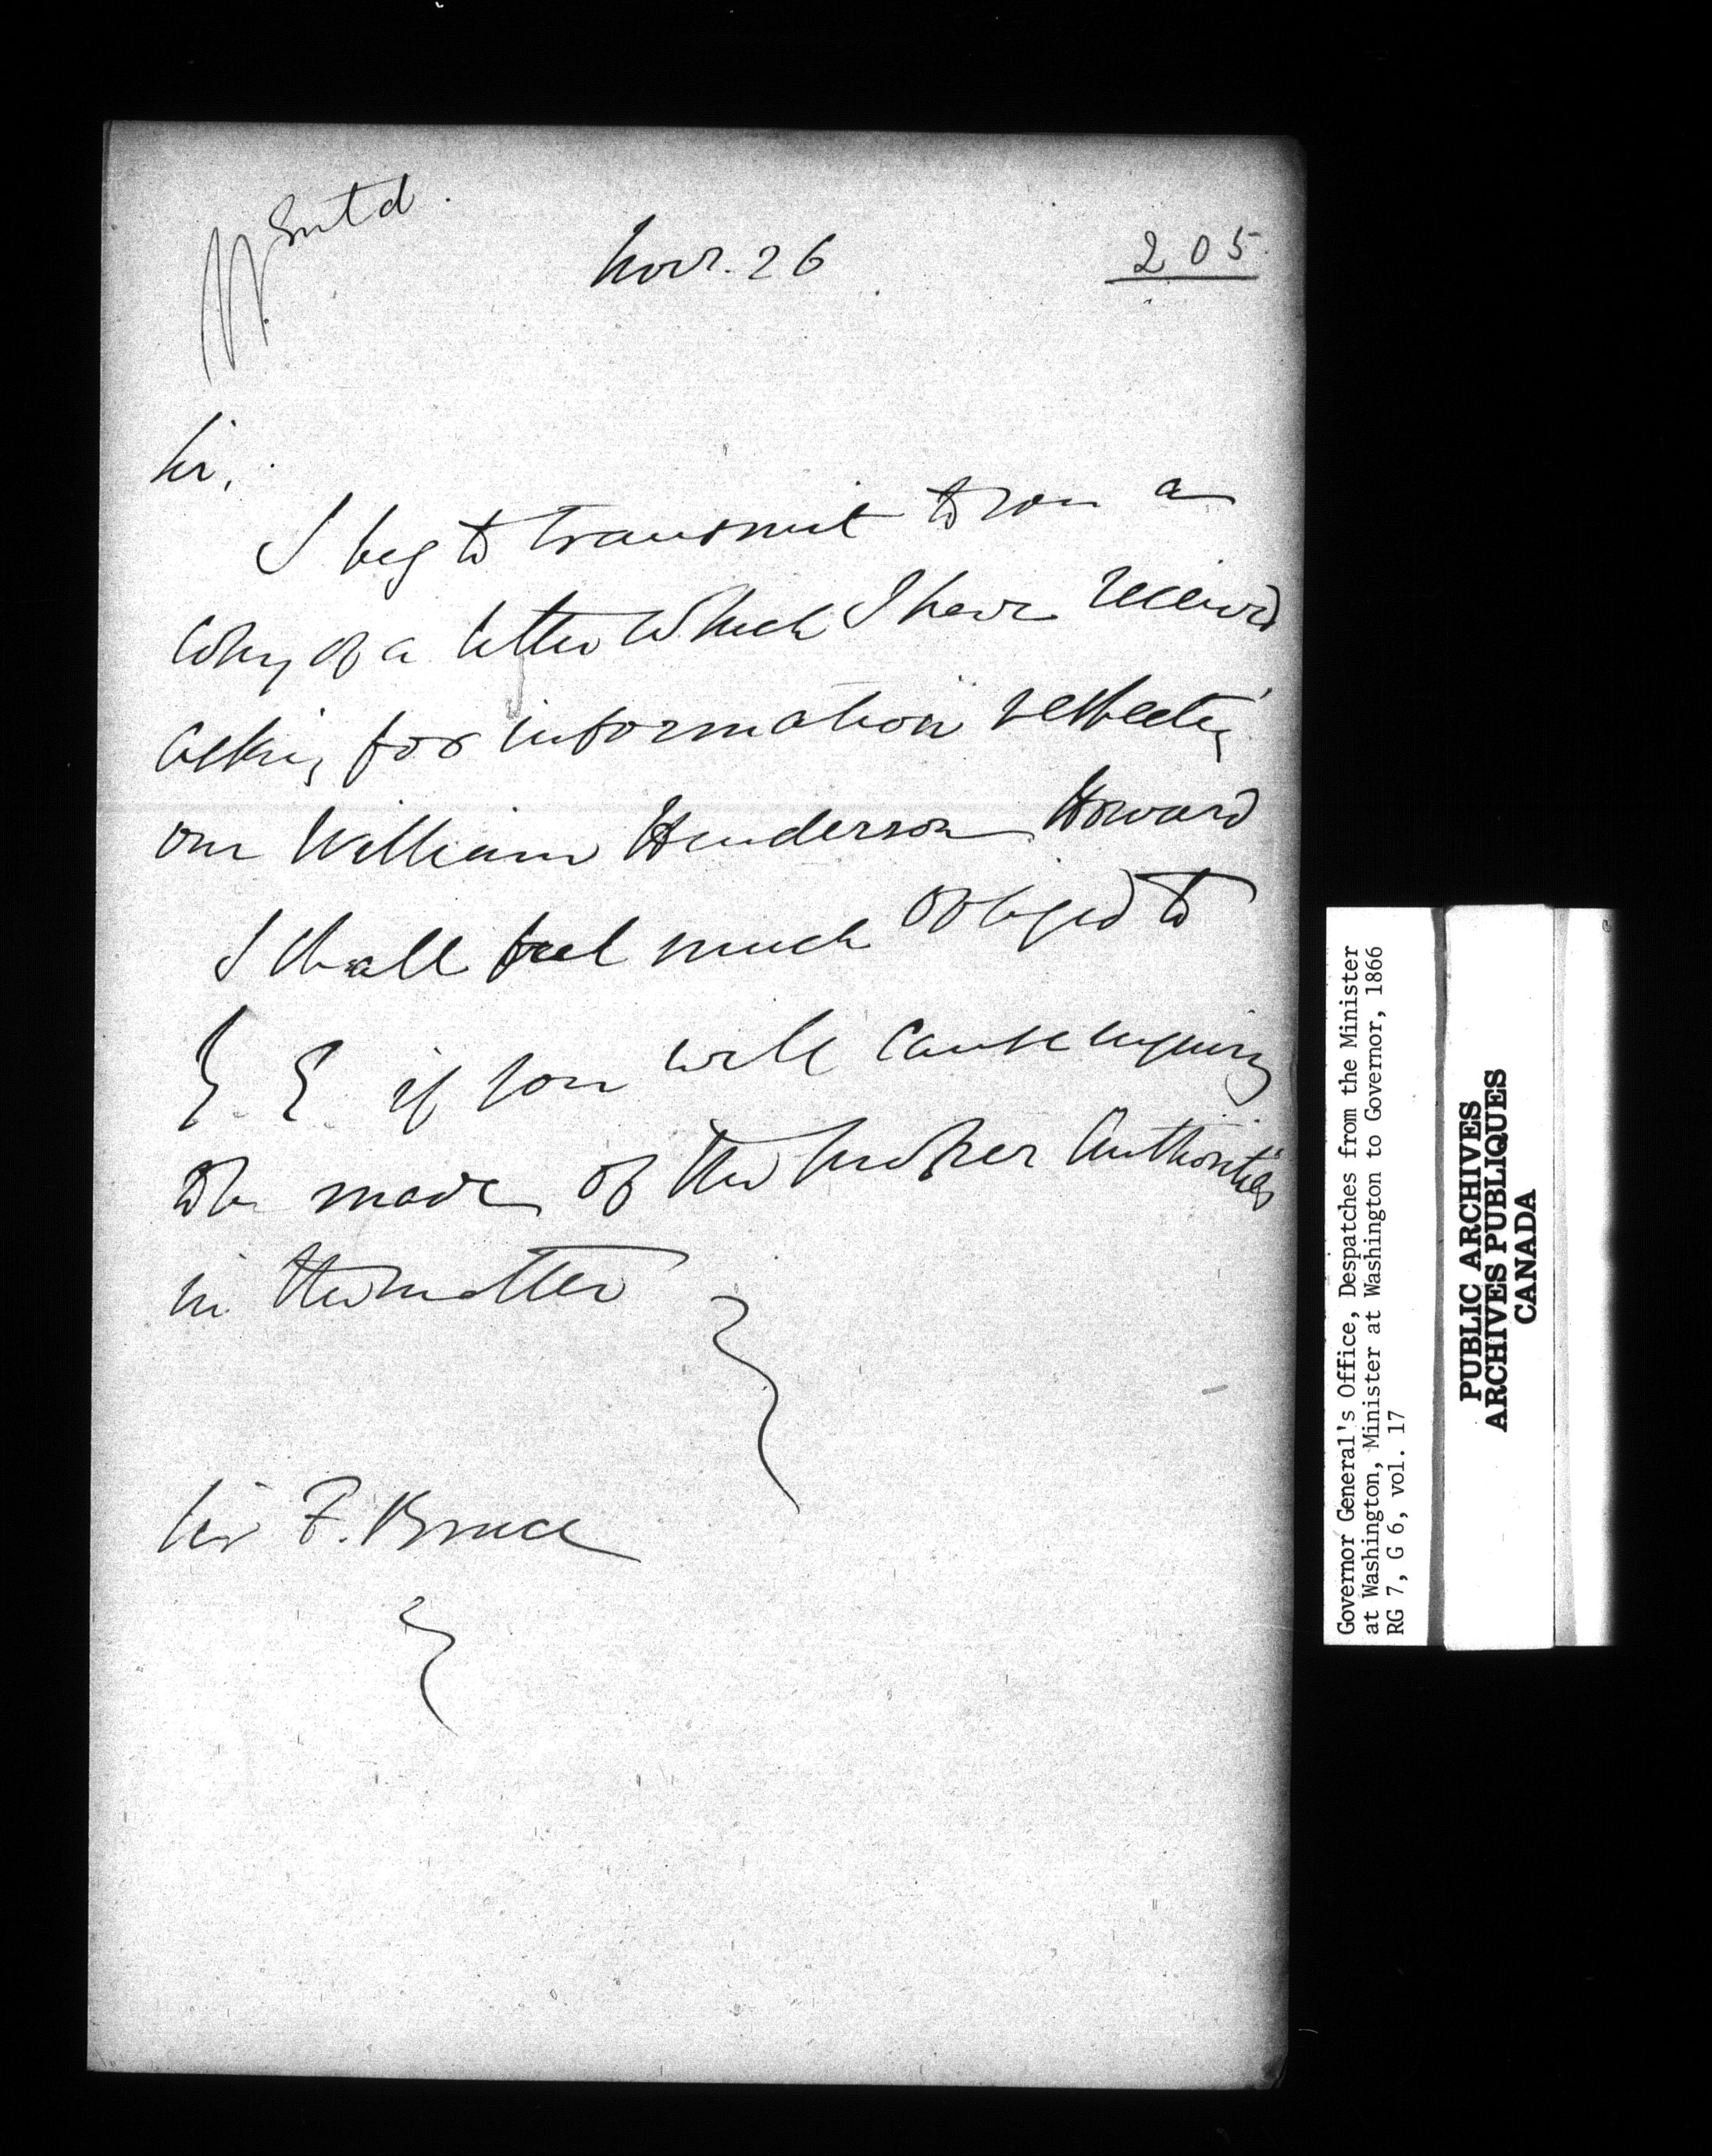 Entd.
Novr. 26
205
Sir,
I beg to transmit to you a
Copy of a letter which I have received
asking for information respecting
one William Henderson Howard
I shall feel much obliged to
Y. E. if you will cause inquiry
to be made of the proper Authorities
in the matter
Sir F. Bruce
Governor General's Office, Despatches from the Minister
at Washington, Minister at Washington to Governor, 1866
RG 7, G 6, vol. 17
PUBLIC ARCHIVES
ARCHIVES PUBLIQUES
CANADA